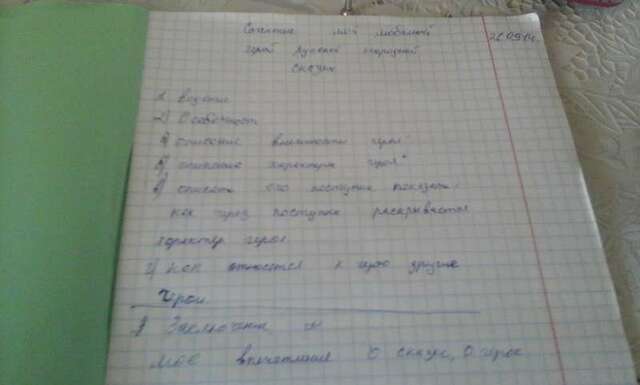 Сочинение мой любимый
герой русской народной
сказки
1. Введение
2)
а) описание внешности героя
б) описание характера героя
в) описать его поступки показать,
как через поступки раскрывается
характер героя
г) как относятся к герою другие
герои
3) Заключение
мое впечатление о сказке, о герое